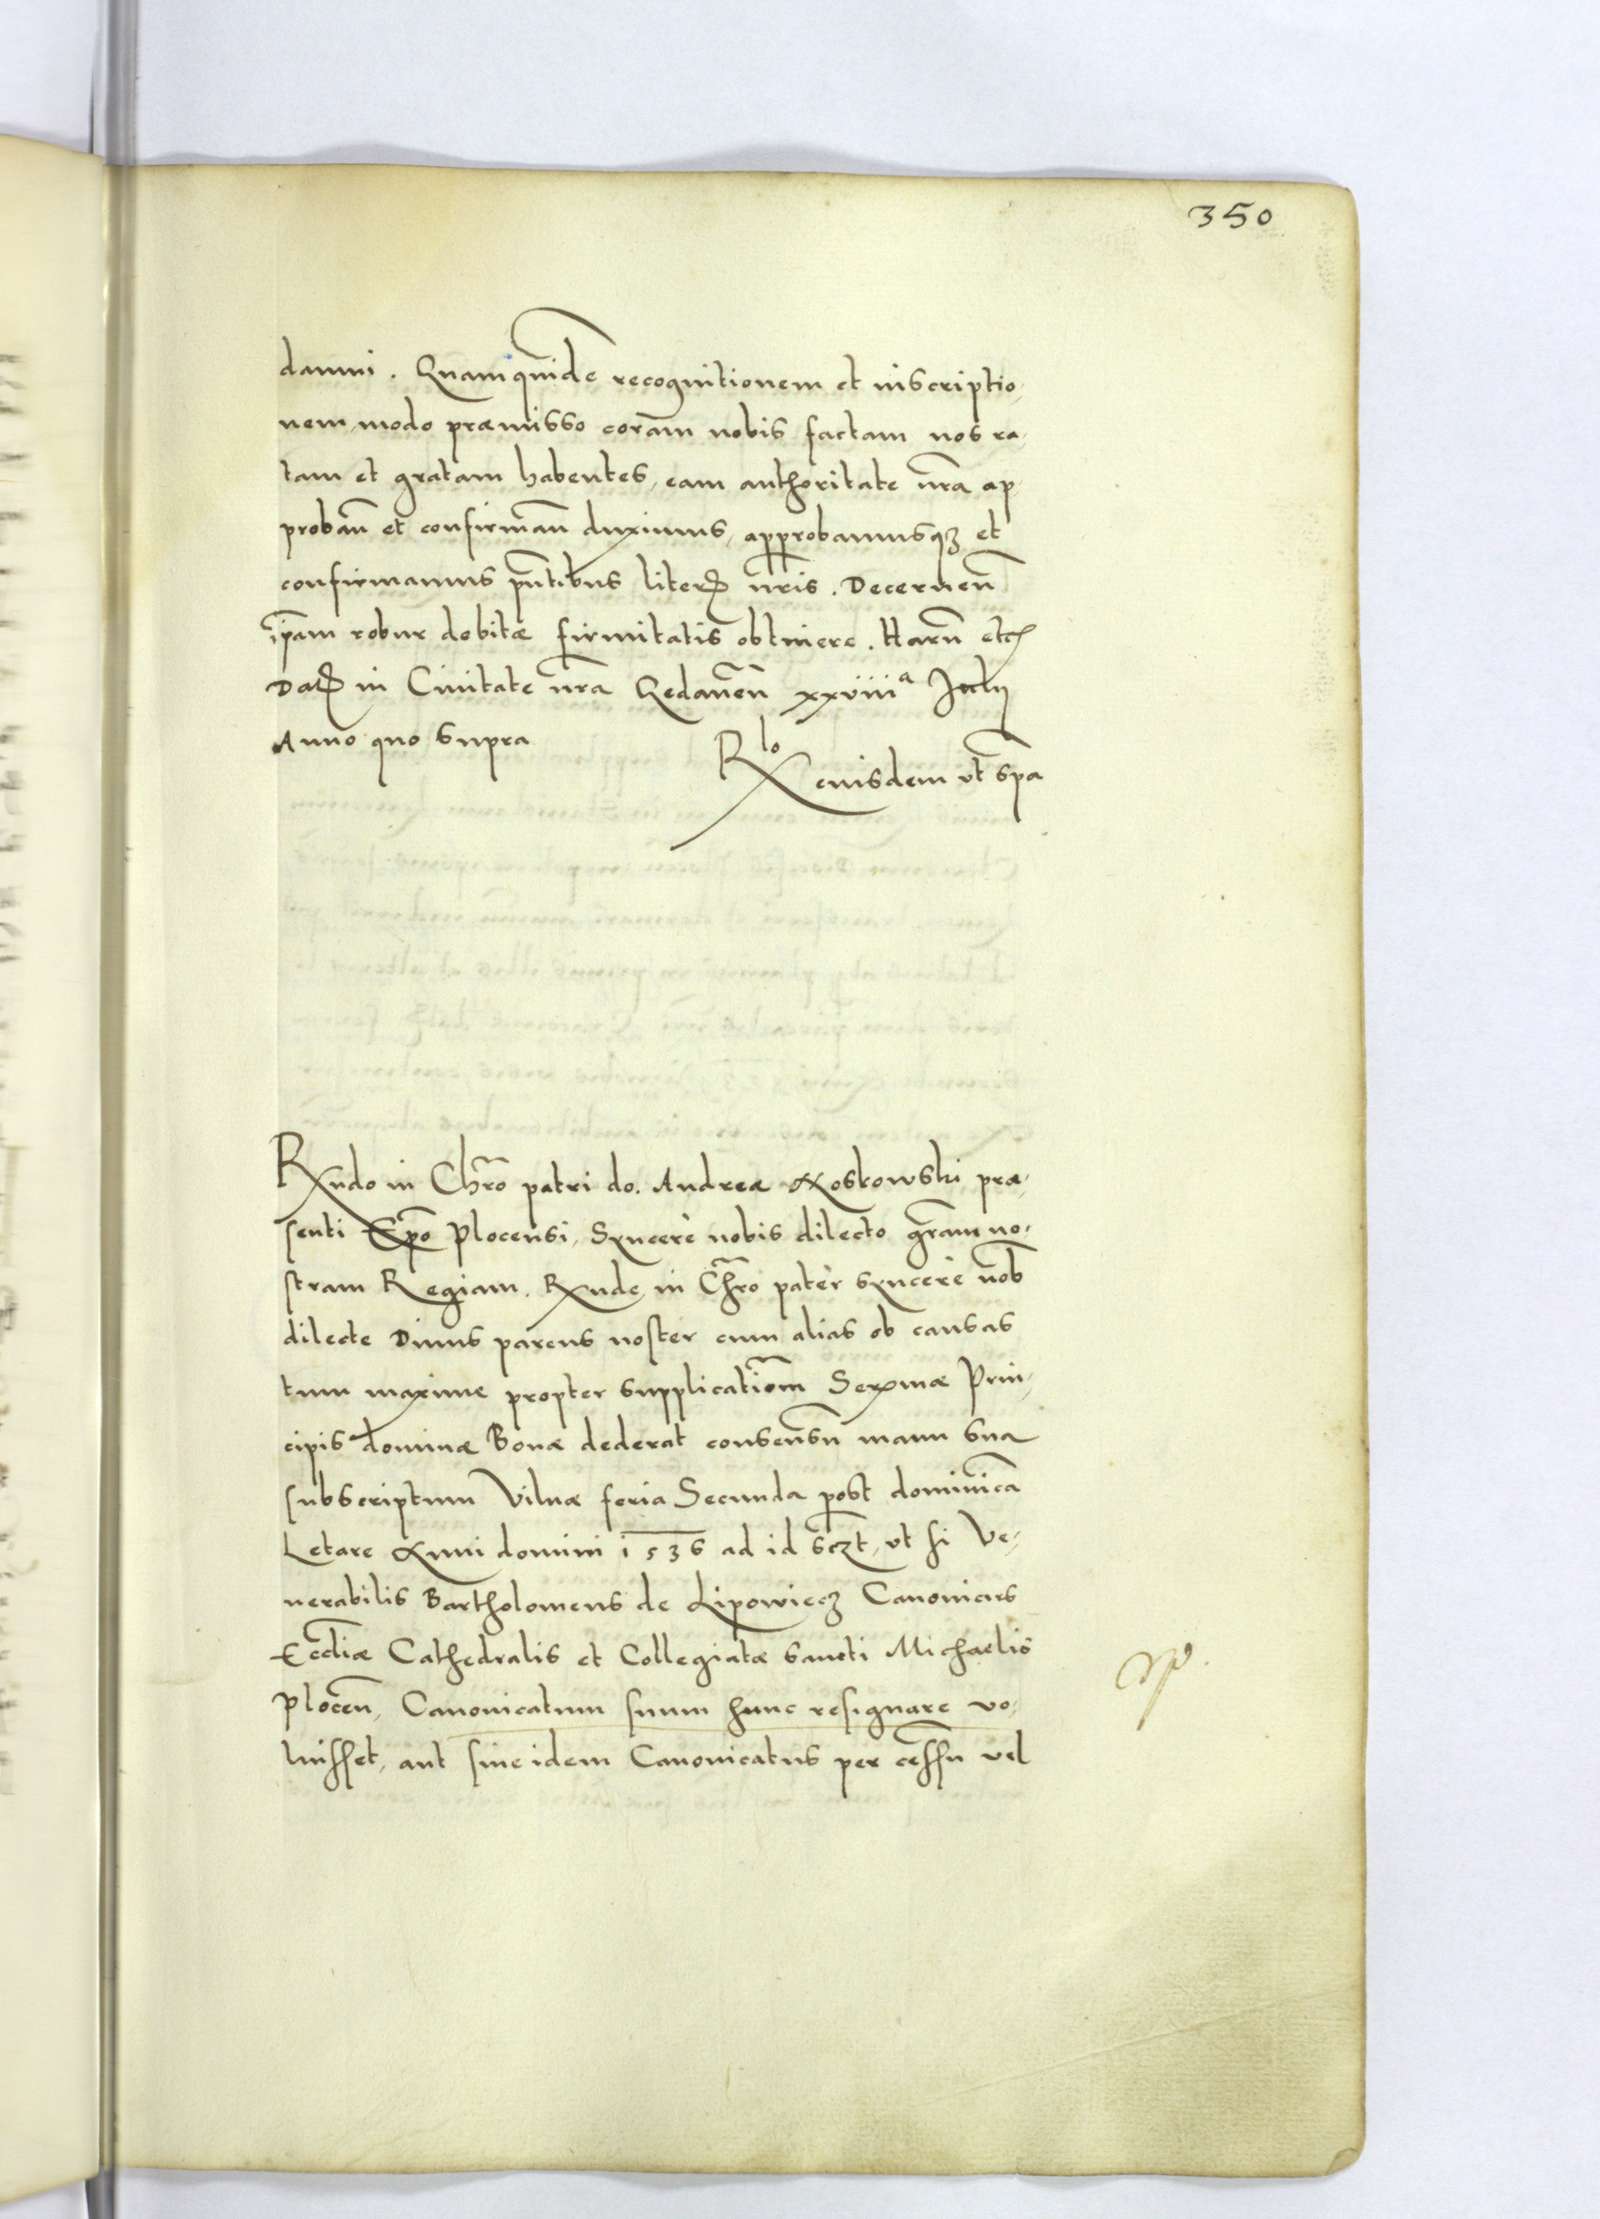 350
damni. Quam quide recognitionem et inscriptio,
nem, modo præmisso coram nobis factam nos ra,
tam et gratam habentes, eam authoritate nra ap
proban et confirman duximus, approbamusqȝ et
confirmamus pntibus literis nris. Decernen
ipam robur debitæ firmitatis obtinere. Harū etc
Dat in Civitate nra Gedanen xxviiiᵃ Julij
Anno quo supra
Rlo eiusdem ut spa
Rndo in Chro patri do. Andreæ Noskowski præ,
senti Epo Plocensi, Syncerè nobis dilecto gram no,
stram Regiam. Rnde in Chro pater syncerè nob
dilecte Divus parens noster cum alias ob causas
tum maxime propter supplicatiom Sermæ Prin,
cipis dominæ Bonæ dederat consensū manu sua
subscriptum Vilnæ feria Secunda post dominica
Letare Anni domini 1536 ad id sczt, ut si Ve,
nerabilis Bartholomeus de Lipowiecz Canonicus
Eccliæ Cathedralis et Collegiatæ Sancti Michaelis
Plocen, Canonicatum suum hunc resignare vo,
luisset, aut sive idem Canonicatus per cessū vel